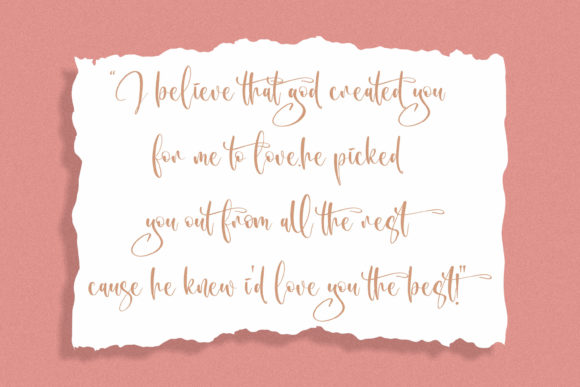 “I believe that god created you
for me to love.he picked
you out from all the rest
cause he knew i'd love you the best!"